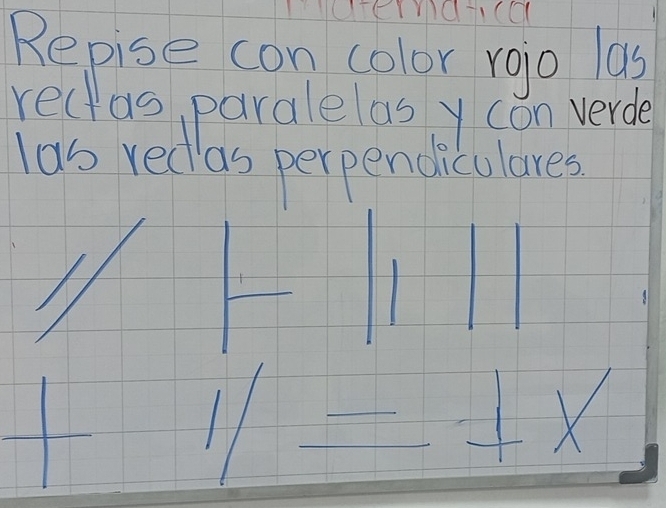 Matemática
Repise con color rojo las
rectas paralelas y con verde
las rectas perpendiculares.